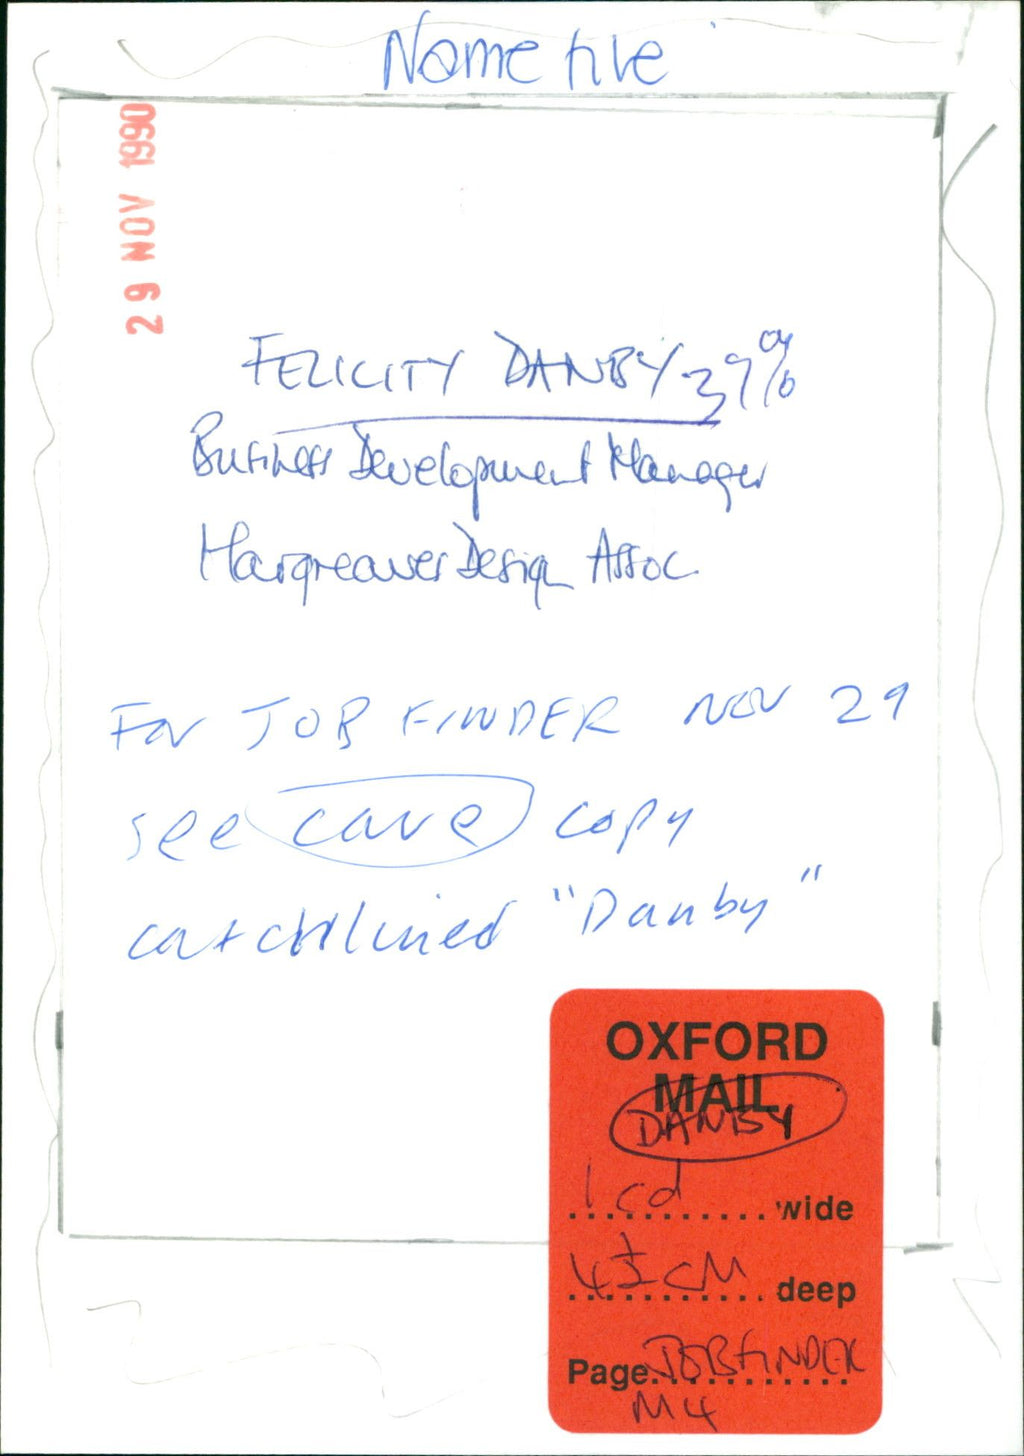 Name file
29 NOV 1990
FELICITY DANBY 39%
Business Development Manager
Hargreaves Design Assoc.
For JOB FINDER NOV 29
see cave copy
catchlined "Danby"
OXFORD
MAIL
DANBY
1 cd wide
4½ cM deep
Page JOBFINDER
M4